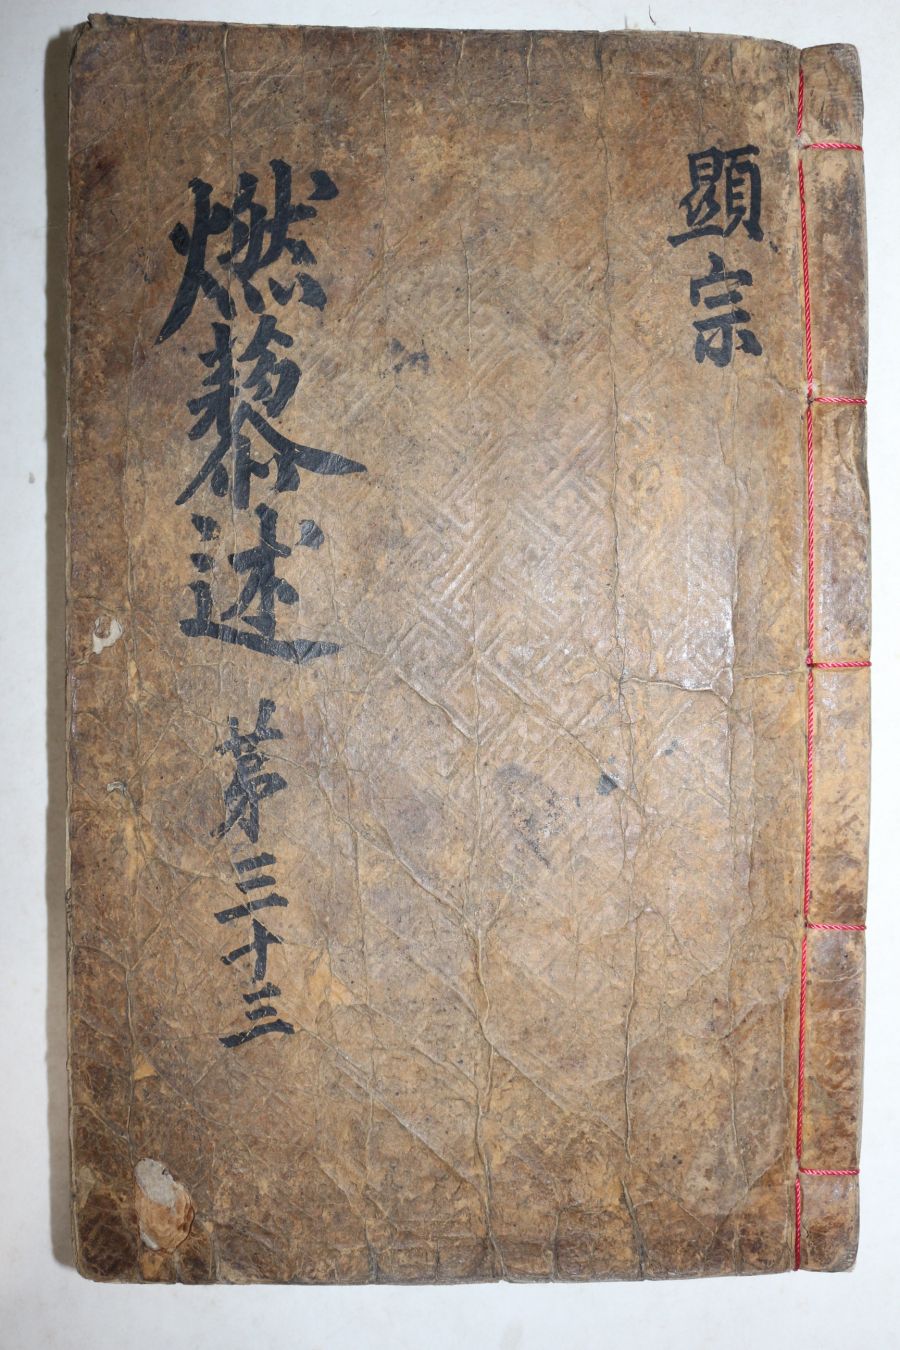 顯宗
燃藜述 第三十三